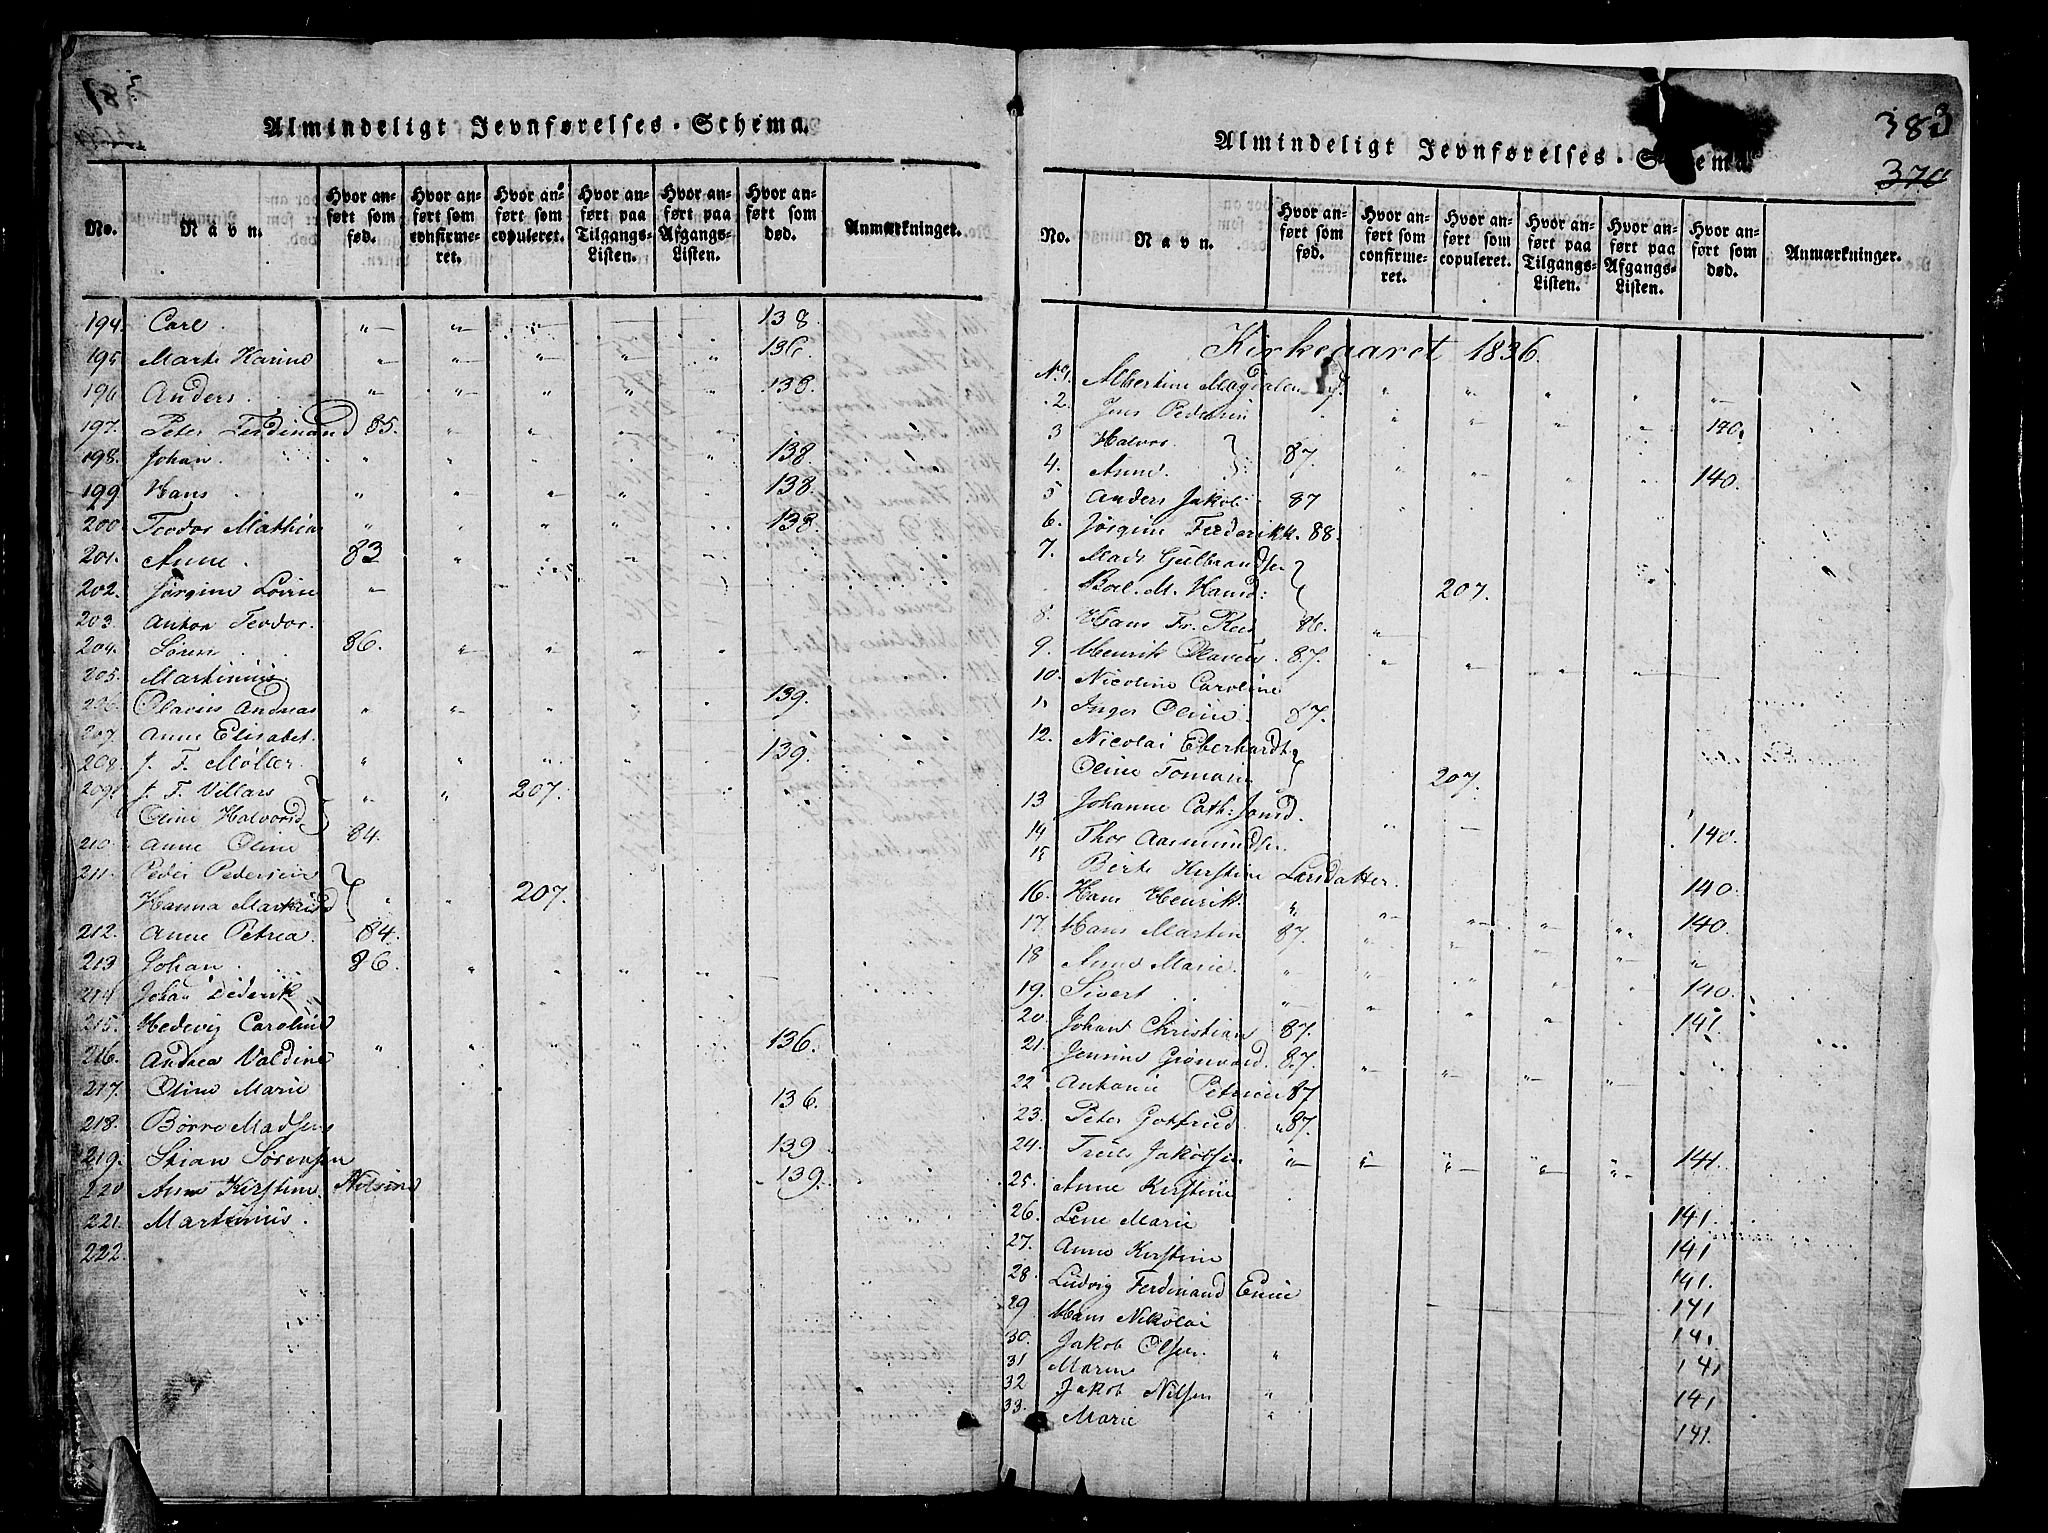 Almindeligt Jevnførelses-Schema.
No.
Navn.
Hvor anført som fød.
Hvor anført som confirmeret.
Hvor anført som copuleret.
Hvor anført paa Tilgangs-Listen.
Hvor anført paa Afgangs-Listen.
Hvor anført som død.
Anmærkninger.
194. Carl " " " " " 138
195 Marte Karine " " " " " 136
196 Anders " " " " " 138
197. Peter Ferdinand 85.
198. Johan. " " " " " 138
199 Hans " " " " " 138.
200 Teodor Mathias " " " " " 138
201. Anne. 83
202. Jørgine Lovise
203. Anton Teodor.
204. Søren 86.
205. Martinius.
206. Olavus Andreas 139.
207. Anne Elisabet.
208. J. F. Møller. 139.
209. J. F. Villars 207.
Oline Halvorsd
210. Anne Oline 84.
211. Peder Pedersen
Hanna Markusd 207.
212. Anne Petrea. 84.
213 Johan. 86.
214 Johan Diderik
215. Hedevig Caroline
216. Andrea Valdine 136.
217. Oline Marie
218. Børre Madsen 136.
219. Stian Sørensen 139
220 Anne Kirstine Nilsind 139.
221. Martinius.
222.
383
370
Almindeligt Jevnførelses-Schema.
No.
Navn.
Hvor anført som fød.
Hvor anført som confirmeret.
Hvor anført som copuleret.
Hvor anført paa Tilgangs-Listen.
Hvor anført paa Afgangs-Listen.
Hvor anført som død.
Anmærkninger.
Kirkeaaret 1836.
No 1. Albertine Magdalen
2. Jens Pedersen 140.
3 Halvor. 87.
4. Anne. 140.
5 Anders Jakob 87
6. Jørgine Frederikke. 88.
7. Mads Gulbrandsen
Boel. M. Hansd: 207.
8. Hans Fr. 86.
9. Henrik Olavus. 87.
10. Nicoline Caroline
11 Inger Oline. 87.
12. Nicolai Eberhardt
Oline Tomasin 207.
13 Johanne Cath: Jonsd.
14 Thor Aasmundsen. 140.
15 Birte Kirstine Larsdatter. 140.
16. Hans Henrik. 140.
17. Hans Martin 87.
18 Anne Marie. 140.
19. Sivert 141.
20. Johan Christian 87.
21. Jensine Grønvold. 87.
22 Antonie Petrine 87
23. Peter Gotfried. 87.
24. Truls Jakobsen 141.
25. Anne Kirstine
26. Lene Marie 141.
27. Anne Kirstine 141
28. Ludvig Ferdinand 141.
29 Hans Nikolai 141
30. Jakob Olsen. 141
31 Maren 141
32 Jakob Nilsen 141
33. Marie 141.